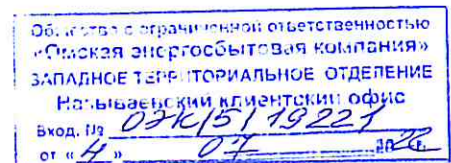 Общество с ограниченной ответственностью
«Омская энергосбытовая компания»
ЗАПАДНОЕ ТЕРРИТОРИАЛЬНОЕ ОТДЕЛЕНИЕ
Называевский клиентский офис
Вход. № ОЭК/5/19221
от «4» 07 2022г.